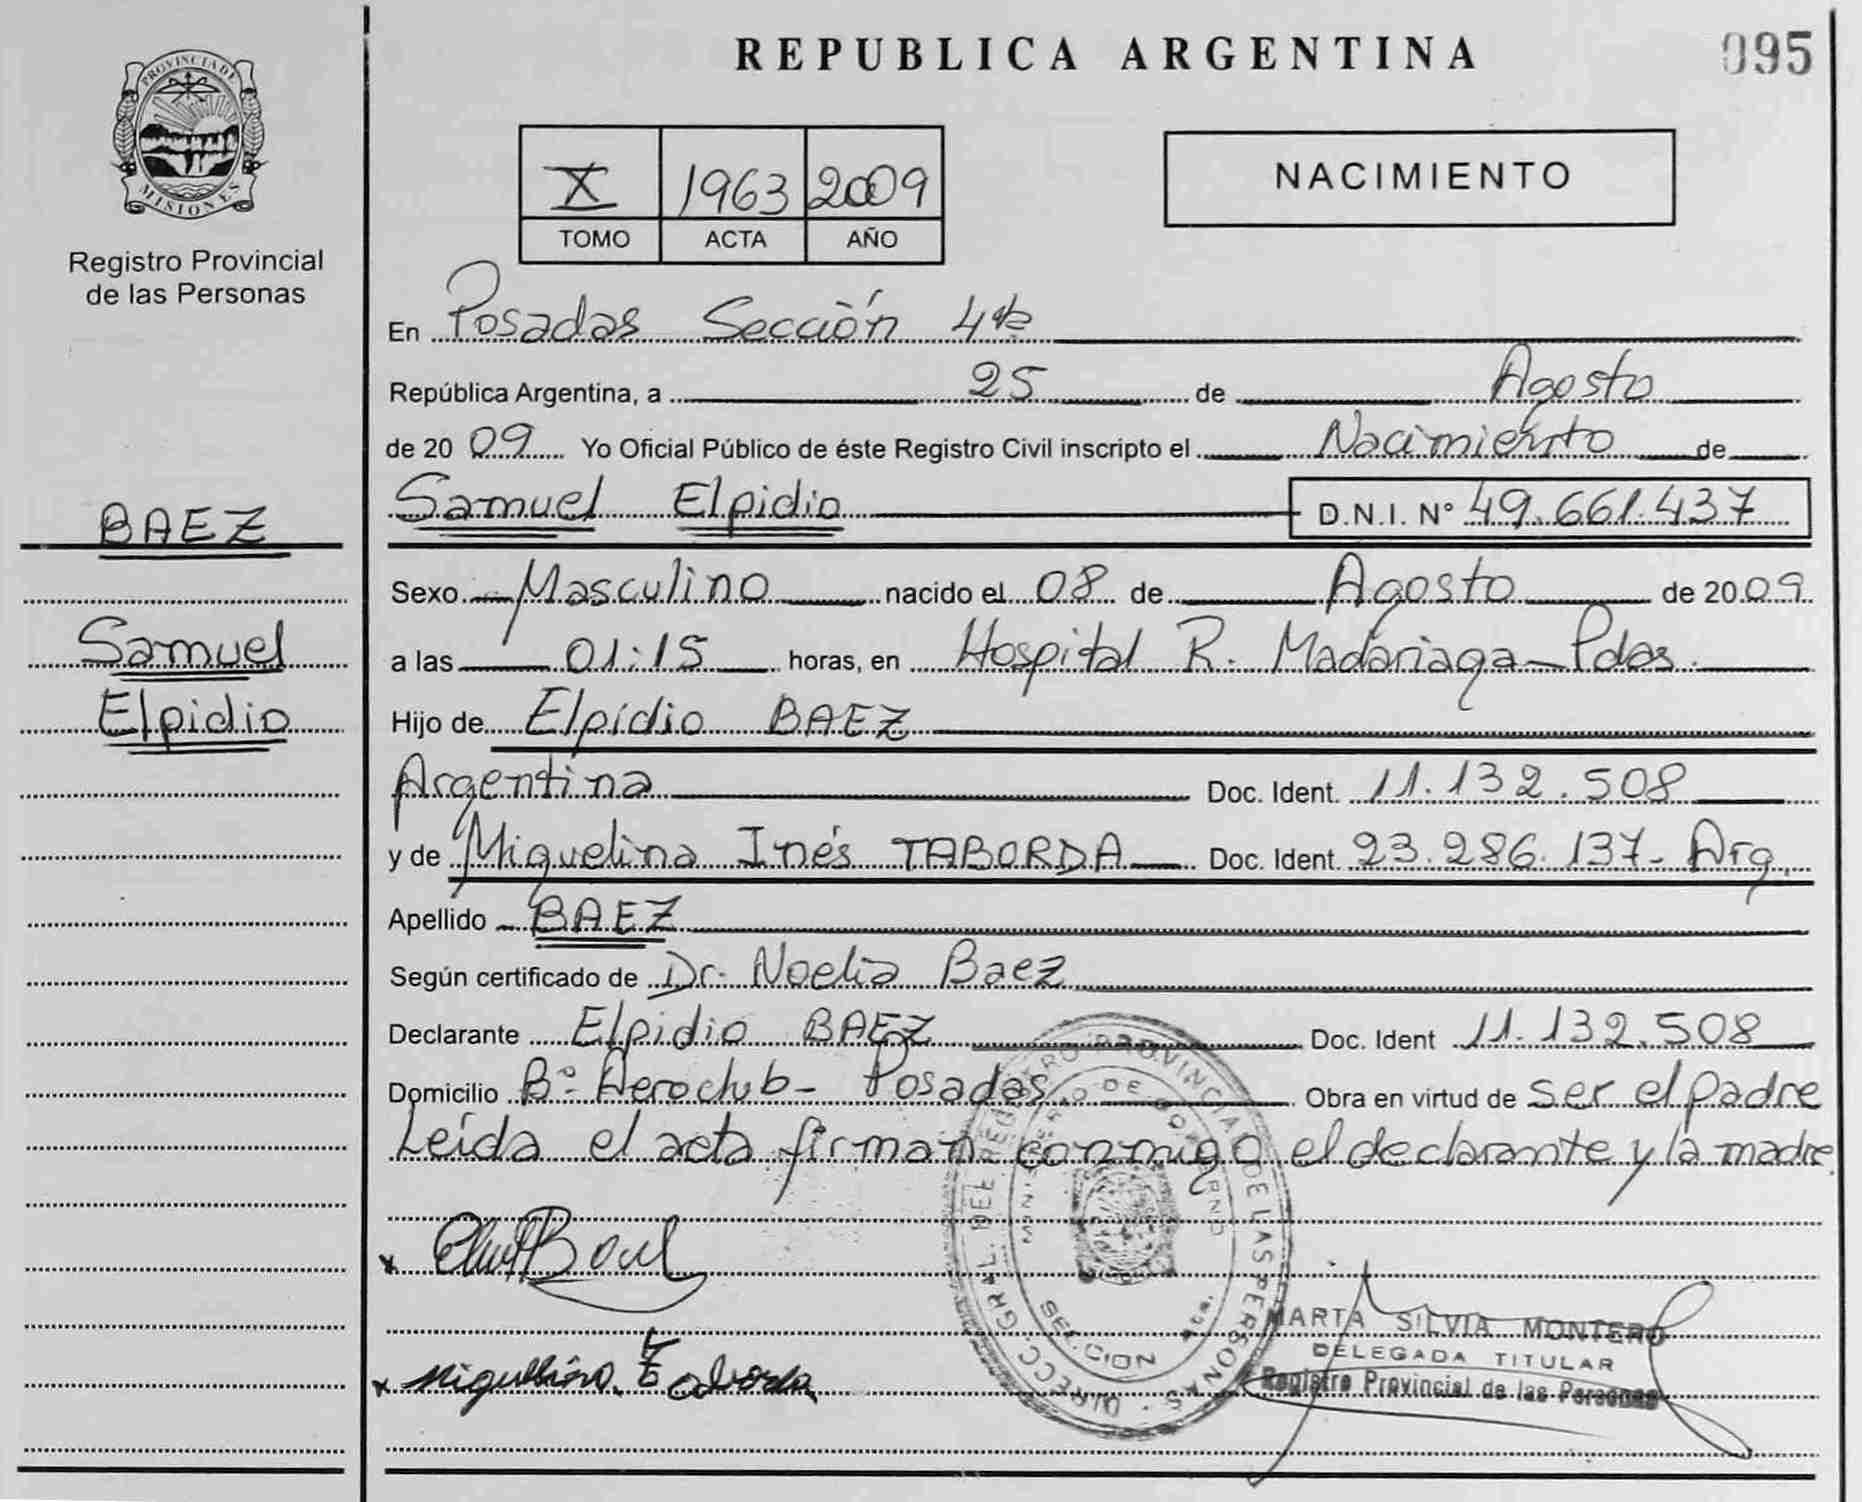 REPUBLICA ARGENTINA
095
PROVINCIA DE
MISIONES
Registro Provincial
de las Personas
X 1963 2009
TOMO ACTA AÑO
NACIMIENTO
En Posadas Sección 4ta
República Argentina, a 25 de Agosto
de 20 09 Yo Oficial Público de éste Registro Civil inscripto el Nacimiento de
BAEZ
Samuel
Elpidio
Samuel Elpidio D.N.I. N° 49.661.437
Sexo Masculino nacido el 08 de Agosto de 2009
a las 01:15 horas, en Hospital R. Madariaga - Pdas.
Hijo de Elpidio BAEZ
Argentina Doc. Ident. 11.132.508
y de Miguelina Inés TABORDA Doc. Ident. 23.286.137- Arg.
Apellido BAEZ
Según certificado de Dr. Noelia Baez
Declarante Elpidio BAEZ Doc. Ident 11.132.508
Domicilio B° Aeroclub - Posadas Obra en virtud de ser el padre
Leída el acta firman conmigo el declarante y la madre.
DIRECC. GRAL. DEL REGISTRO PROVINCIAL DE LAS PERSONAS
MINISTERIO DE GOBIERNO
SECCION 4ta.
x
x Miguelina Taborda
MARTA SILVIA MONTERO
DELEGADA TITULAR
Registro Provincial de las Personas